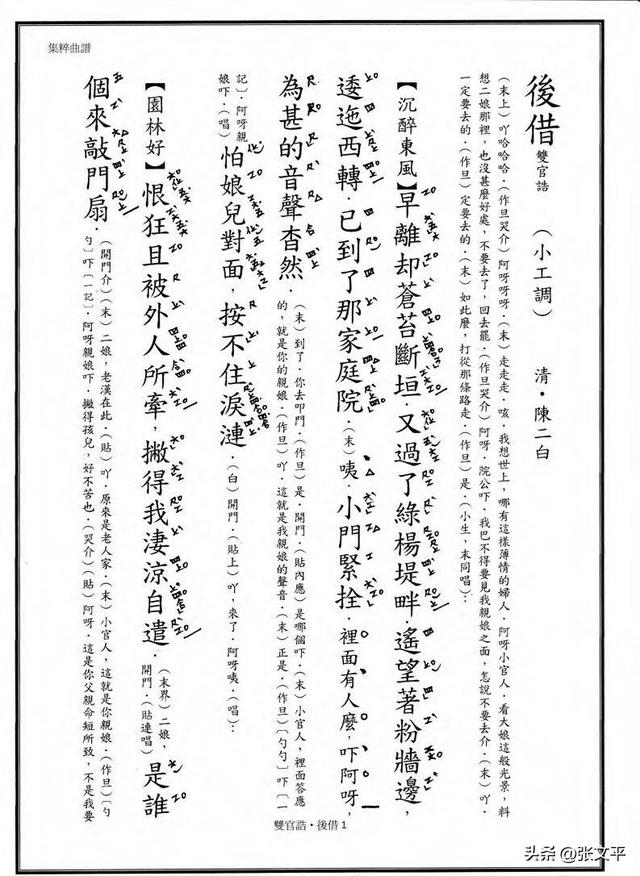 集粹曲譜
後借 雙官誥 （小工調） 清・陳二白
（末上）吖哈哈哈．（作旦哭介）阿呀呀呀．（末）走走走．咳．我想世上．哪有這樣薄情的婦人．阿呀小官人．看大娘這般光景，料
想二娘那裡，也沒甚麼好處，不要去了，回去罷．（作旦哭介）阿呀．院公吓．我巴不得要見我親娘之面，怎說不要去介．（末）吖．
一定要去的．（作旦）一定要去的．（末）如此麼，打從那條路走．（作旦）是．（小生，末同唱）：
【沉醉東風】早離却蒼苔斷垣．又過了綠楊堤畔．遙望著粉牆邊，
逶迤西轉．已到了那家庭院．（末）咦．小門緊拴．裡面有人麼，吓阿呀，
為甚的音聲杳然．（末）到了．你去叩門．（作旦）是．開門．（貼內應）是哪個吓．（末）小官人，裡面答應
的，就是你的親娘．（作旦）吖．這就是我親娘的聲音．（末）正是．（作旦）〔勺勺〕吓〔一
記〕．阿呀親
娘吓．（唱）怕娘兒對面，按不住淚漣．（白）開門．（貼上）吖，來了．阿呀咦．（唱）：
【園林好】恨狂且被外人所牽，撇得我淒涼自遣．（末界）二娘，
開門．（貼連唱）是誰
個來敲門扇．（開門介）（末）二娘，老漢在此．（貼）吖．原來是老人家．（末）小官人，這就是你親娘．（作旦）〔勺
勺〕吓〔一記〕．阿呀親娘吓．撇得孩兒，好不苦也．（哭介）（貼）阿呀．這是你父親命短所致，不是我要
雙官誥・後借 1
头条 @张文平